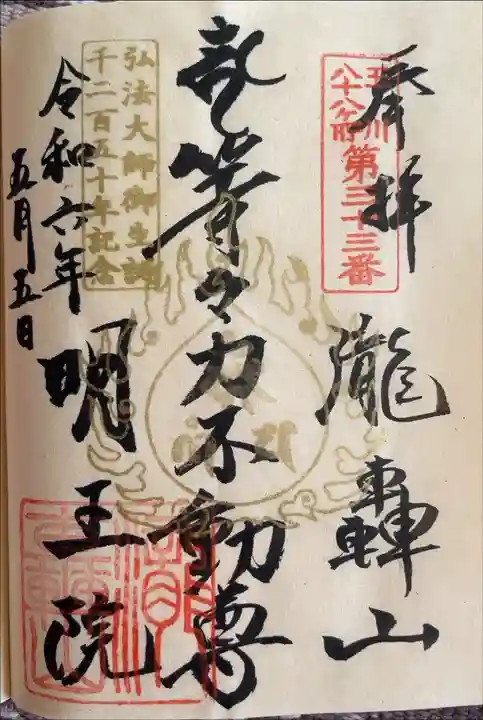 奉拝
玉川
八十八ヶ所
第三十三番
瀧轟山
等々力不動尊
弘法大師御生誕
千二百五十年記念
明王院
令和六年
五月五日